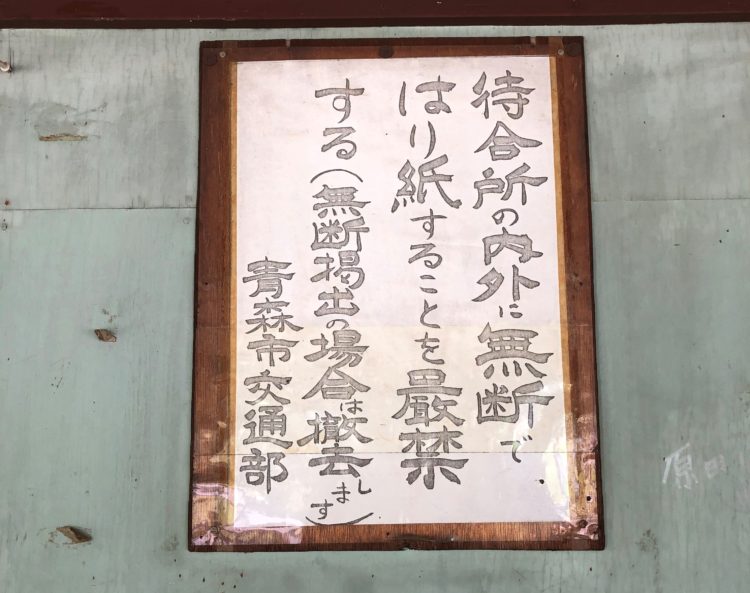 待合所の内外に無断で
はり紙することを厳禁
する(無断掲出の場合は撤去します)
青森市交通部